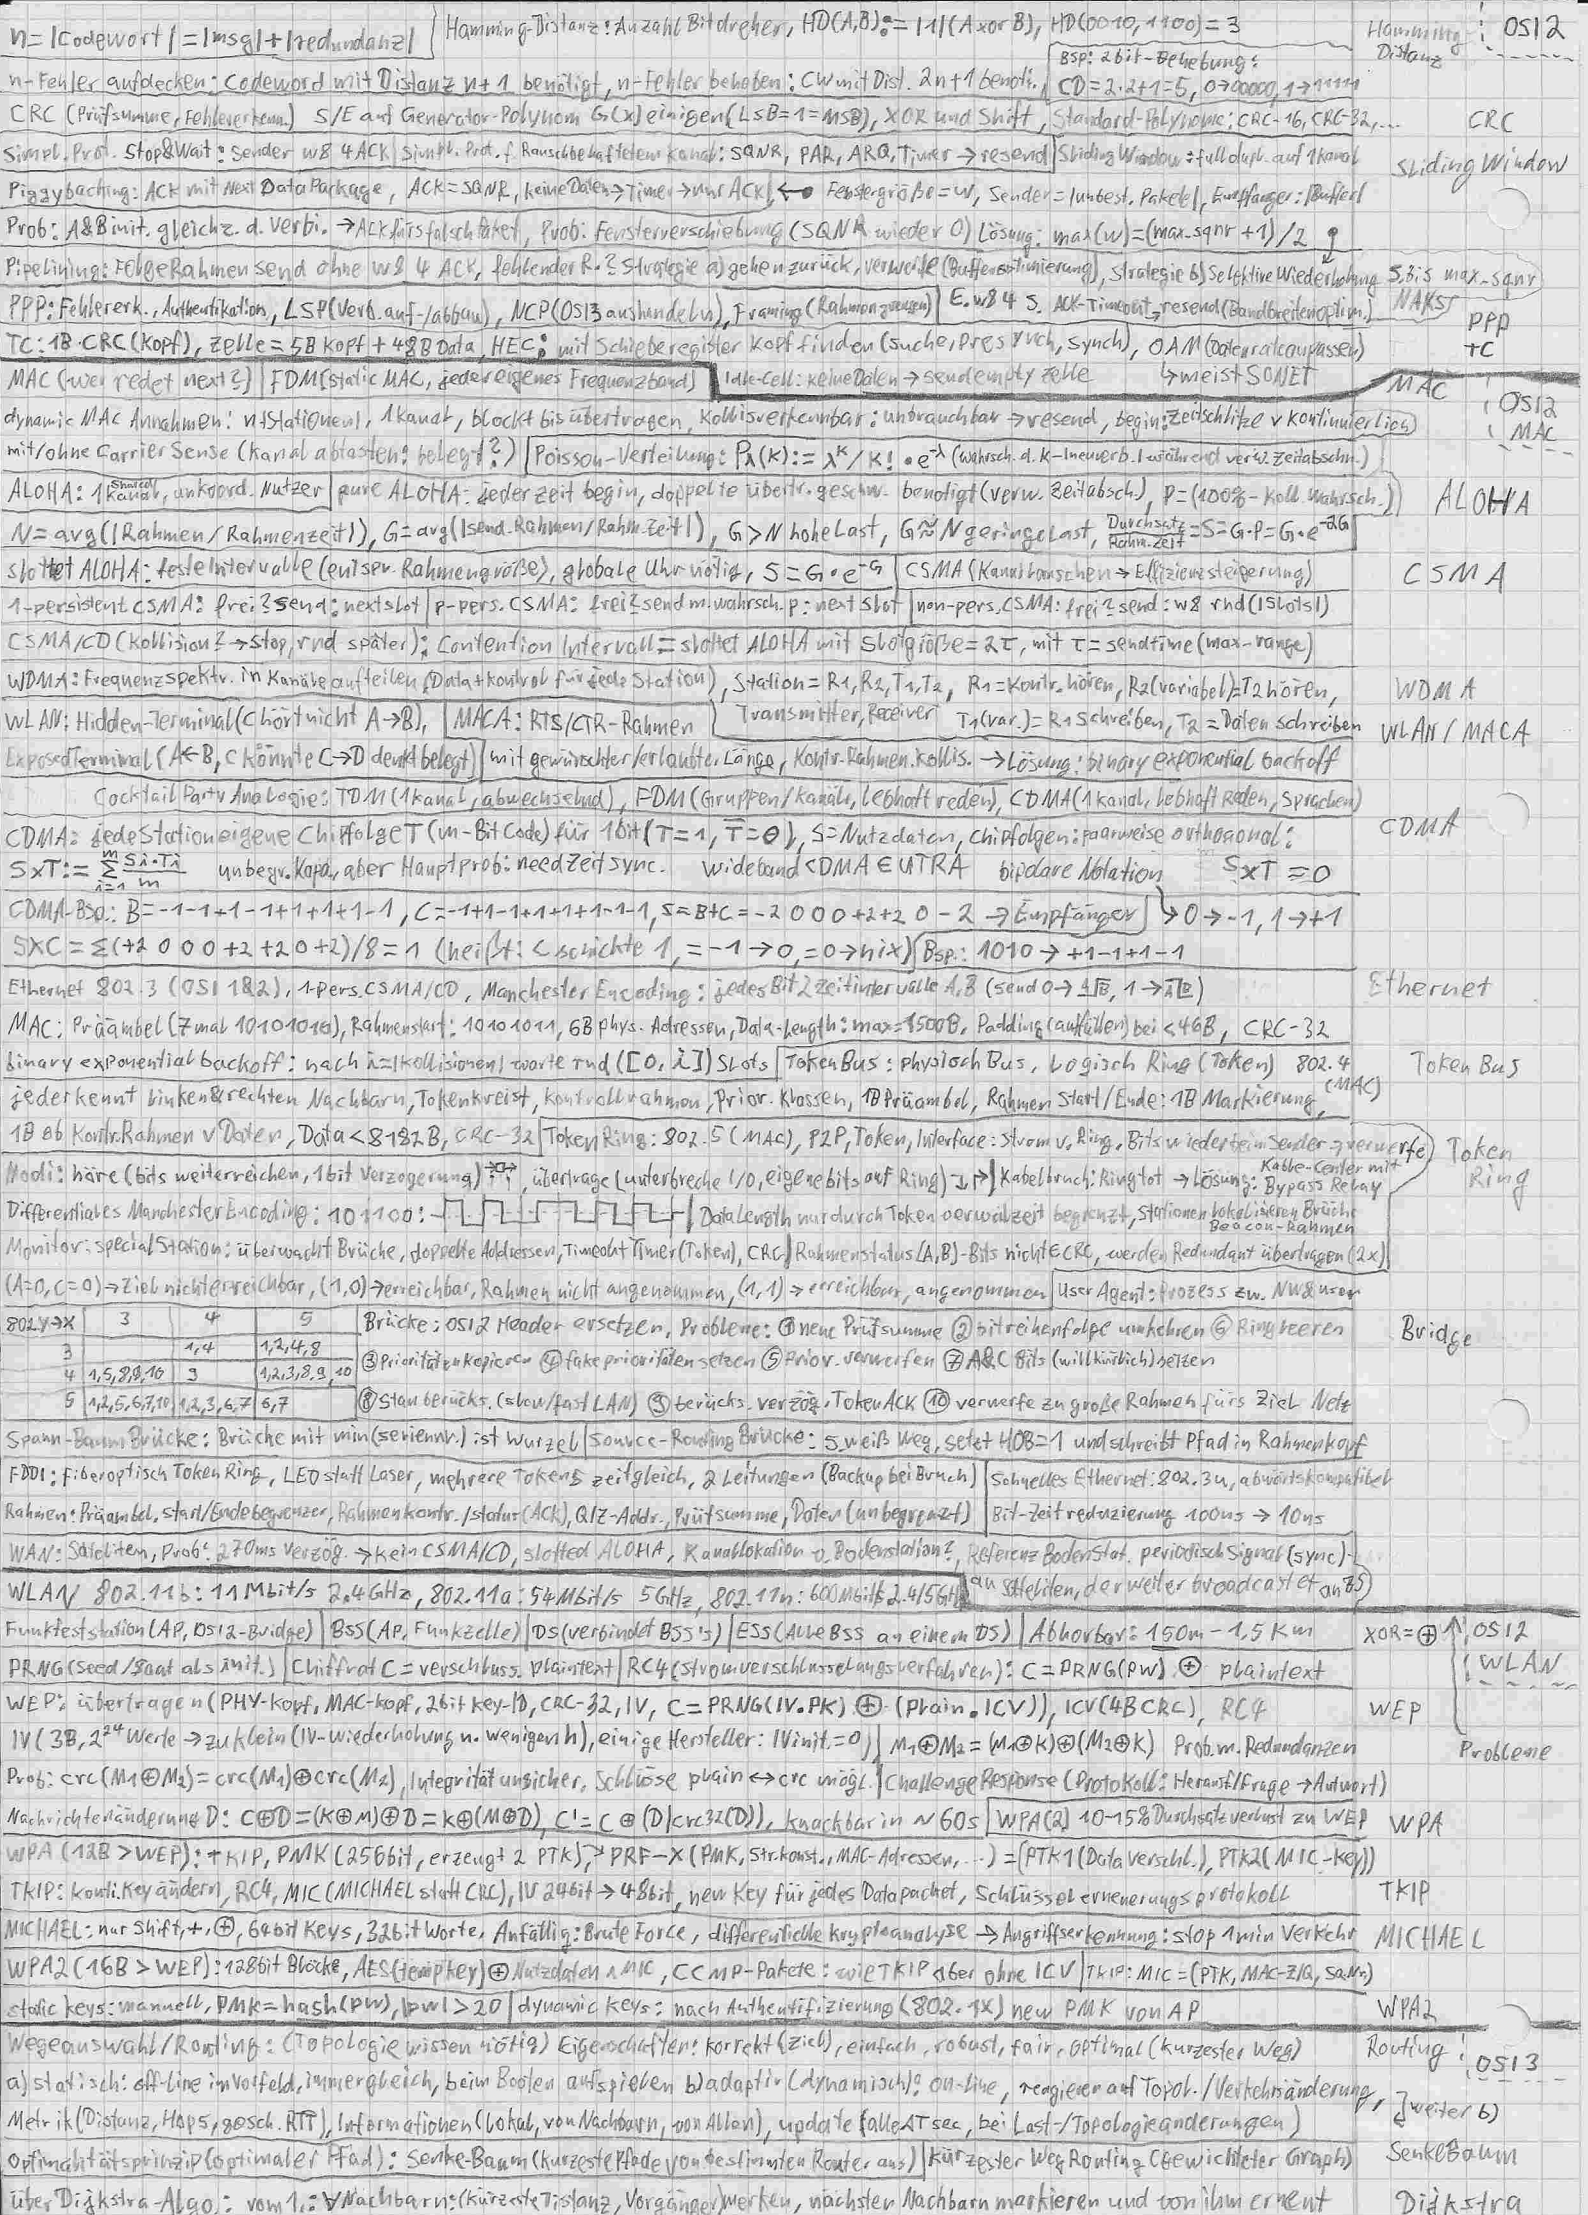 n=|Codewort|=|msg|+|redundanz| Hamming-Distanz: Anzahl Bitdreher, HD(A,B):=|1|(A xor B), HD(0010,1100)=3 Hamming Distanz OSI2
n-Fehler aufdecken: Codeword mit Distanz n+1 benötigt, n-Fehler beheben: CW mit Dist. 2n+1 benöti. Bsp: 2bit-Behebung: CD=2·2+1=5, 0→00000, 1→11111
CRC (Prüfsumme, Fehlererkenn.) S/E auf Generator-Polynom G(x) einigen (LSB=1=MSB), XOR und Shift, Standard-Polynome: CRC-16, CRC-32,... CRC
Simpl. Prot. Stop&Wait: Sender w8 4 ACK | Simpl. Prot. f. Rauschbehafteten Kanal: SQNR, PAR, ARQ, Timer → resend | Sliding Window: fulldupl. auf 1 Kanal Sliding Window
Piggybacking: ACK mit Next Data Package, ACK=SQNR, keine Daten→Timer→nur ACK Fenstergröße=w, Sender=|unbest. Pakete|, Empfänger: |Buffer|
Prob: A&B init. gleichz. d. Verbi. → ACK fürs falsch Paket, Prob: Fensterverschiebung (SQNR wieder 0) Lösung: max(w)=(max_sqnr+1)/2
Pipelining: Folge Rahmen send ohne w8 4 ACK, fehlender R.? Strategie a) gehen zurück, verwerfe (Bufferoptimierung), Strategie b) Selektive Wiederholung S. bis max_sqnr
PPP: Fehlererk., Authentikation, LSP (Verb. auf-/abbau), NCP (OSI3 aushandeln), Framing (Rahmengrenzen) | E. w8 4 S. ACK-Timeout→resend (Bandbreitenoptim.) NAKS PPP
TC: 1B·CRC (Kopf), Zelle=5B Kopf+48B Data, HEC: mit Schieberegister Kopf finden (suche, presynch, synch), OAM (Datenrate anpassen) TC
MAC (wer redet next?) | FDM (static MAC, jeder eigenes Frequenzband) Idle-Cell: keine Daten → send empty Zelle ↳ meist SONET MAC
dynamic MAC Annahmen: n|Stationen|, 1 Kanal, blockt bis übertragen, Kollis. erkennbar: unbrauchbar → resend, begin: Zeitschlitze v Kontinuierlich OSI2 MAC
mit/ohne Carrier Sense (Kanal abtasten: belegt?) | Poisson-Verteilung: Pλ(K):=λ^K/K!·e^-λ (Wahrsch. d. K-|neuverb.| während verw. Zeitabschn.)
ALOHA: 1 Shared Kanal, unkoord. Nutzer | pure ALOHA: jederzeit begin, doppelte Übertr. geschw. benötigt (verw. Zeitabsch.), P=(100%-Koll. Wahrsch.) ALOHA
N=avg(|Rahmen/Rahmenzeit|), G=avg(|send. Rahmen/Rahm. Zeit|), G>N hohe Last, G≈N geringe Last, Durchsatz/Rahm. Zeit=S=G·P=G·e^-2G
slottet ALOHA: feste Intervalle (entspr. Rahmengröße), globale Uhr nötig, S=G·e^-G | CSMA (Kanal lauschen → Effizienzsteigerung) CSMA
1-persistent CSMA: frei? send: next slot | p-pers. CSMA: frei? send m. wahrsch. p: next slot | non-pers. CSMA: frei? send: w8 rnd(|Slots|)
CSMA/CD (Kollision? → Stop, rnd später): Contention Intervall = slottet ALOHA mit Slotgröße=2τ, mit τ=sendtime(max-range)
WDMA: Frequenzspektr. in Kanäle aufteilen (Data+Kontrol für jede Station), Station=R1,R2,T1,T2, R1=Kontr. hören, R2(variabel)=T2 hören, WDMA
WLAN: Hidden-Terminal (C hört nicht A→B), | MACA: RTS/CTR-Rahmen Transmitter, Receiver T1(var.)=R1 Schreiben, T2=Daten schreiben WLAN/MACA
Exposed Terminal (A←B, C könnte C→D denkt belegt) mit gewünschter/erlaubter Länge, Kontr. Rahmen. Kollis. → Lösung: binary exponential backoff
Cocktail Party Analogie: TDM (1 Kanal, abwechselnd), FDM (Gruppen/Kanäle, lebhaft reden), CDMA (1 Kanal, lebhaft Reden, Sprachen)
CDMA: jede Station eigene Chipfolge T (m-Bit Code) für 1bit (T=1, T̄=0), S=Nutzdaten, Chipfolgen: paarweise orthogonal: CDMA
SxT:=Σ(i=1..m) Si·Ti/m unbegr. Kapa, aber Hauptprob: need Zeit sync. wideband CDMA ∈ UTRA bipolare Notation SxT=0
CDMA-Bsp.: B=-1-1+1-1+1+1+1-1, C=-1+1-1+1+1+1-1-1, S=B+C=-2 0 0 0 +2+2 0 -2 → Empfänger ↳ 0→-1, 1→+1
SXC=Σ(+2 0 0 0 +2 +2 0 +2)/8=1 (heißt: C schickte 1, =-1→0, =0→nix) Bsp.: 1010→+1-1+1-1
Ethernet 802.3 (OSI 1&2), 1-pers. CSMA/CD, Manchester Encoding: jedes Bit 2 Zeitintervalle A,B Ethernet
MAC: Präambel (7 mal 10101010), Rahmenstart: 10101011, 6B phys. Adressen, Data-Length: max=1500B, Padding (auffüllen) bei <46B, CRC-32
binary exponential backoff: nach i=|Kollisionen| warte rnd([0,i]) Slots | Token Bus: physisch Bus, Logisch Ring (Token) 802.4 (MAC) Token Bus
jeder kennt linken & rechten Nachbarn, Token kreist, Kontrollrahmen, Prior. Klassen, 1B Präambel, Rahmen Start/Ende: 1B Markierung,
1B ob Kontr. Rahmen v Daten, Data<8182B, CRC-32 | Token Ring: 802.5 (MAC), P2P, Token, Interface: Strom v. Ring, Bits wieder beim Sender → verwerfe Token Ring
Modi: höre (bits weiterreichen, 1bit Verzögerung), übertrage (unterbreche I/O, eigene bits auf Ring) | Kabelbruch: Ring tot → Lösung: Kable-Center mit Bypass Relay
Differentielles Manchester Encoding: 101100: | Data Length nur durch Token verweilzeit begrenzt, Stationen lokalisieren Brüche Beacon-Rahmen
Monitor: special Station: überwacht Brüche, doppelte Addressen, Timeoht Timer (Token), CRC | Rahmenstatus (A,B)-Bits nicht ∈ CRC, werden Redundant übertragen (2x)
(A=0, C=0) → Ziel nicht erreichbar, (1,0) → erreichbar, Rahmen nicht angenommen, (1,1) → erreichbar, angenommen | User Agent: Prozess zw. NW & user
802.Y→X 3 4 5 Brücke: OSI2 Header ersetzen, Probleme: ① neue Prüfsumme ② bitreihenfolge umkehren ⑥ Ring leeren Bridge
3 1,4 1,2,4,8
4 1,5,8,9,10 9 1,2,3,8,9,10 ③ Priorität kopieren ④ fake prioritäten setzen ⑤ Prior. verwerfen ⑦ A&C Bits (willkürlich) setzen
5 1,2,5,6,7,10 1,2,3,6,7 6,7 ⑧ Stau berücks. (slow/fast LAN) ⑨ berücks. verzög. Token ACK ⑩ verwerfe zu große Rahmen fürs Ziel Netz
Spann-Baum Brücke: Brücke mit min(seriennr.) ist Wurzel | Source-Routing Brücke: S. weiß Weg, setzt HOB=1 und schreibt Pfad in Rahmenkopf
FDDI: Fiberoptisch Token Ring, LED statt Laser, mehrere Tokens zeitgleich, 2 Leitungen (Backup bei Bruch) | Schnelles Ethernet: 802.3u, abwärtskompatibel
Rahmen: Präambel, Start/Endebegrenzer, Rahmenkontr./status (ACK), Q/Z-Addr., Prüfsumme, Daten (unbegrenzt) | Bit-Zeitreduzierung 100ns → 10ns
WAN: Sateliten, Prob: 270ms Verzög. → kein CSMA/CD, slotted ALOHA, Kanallokation v. Bodenstation?, Referenz BodenStat. periodisch Signal (sync)-
WLAN 802.11b: 11Mbit/s 2.4GHz, 802.11a: 54Mbit/s 5GHz, 802.11n: 600Mbit/s 2.4/5GH an Stteliten, der weiter broadcastet an BS
Funkfeststation (AP, OSI2-Bridge) | BSS (AP, Funkzelle) | DS (verbindet BSS's) | ESS (Alle BSS an einem DS) | Abhörbar: 150m-1,5 Km XOR=⊕ OSI2
PRNG (seed/Saat als init.) | Chiffrat C=verschlüss. plaintext | RC4 (Stromverschlüsselungsverfahren): C=PRNG(PW) ⊕ plaintext WLAN
WEP: übertragen (PHY-Kopf, MAC-kopf, 2bit key-ID, CRC-32, IV, C=PRNG(IV.PK) ⊕ (Plain.ICV)), ICV (4B CRC), RC4 WEP
IV (3B, 2^24 Werte → zu klein (IV-wiederholung n. wenigen h), einige Hersteller: IV init.=0) | M1⊕M2=(M1⊕K)⊕(M2⊕K) Prob. m. Redundanzen Probleme
Prob: crc(M1⊕M2)=crc(M1)⊕crc(M2), Integrität unsicher, Schlüsse plain ↔ crc mögl. | Challenge Response (Protokoll: Herausf/Frage → Antwort)
Nachrichtenänderung D: C⊕D=(K⊕M)⊕D=K⊕(M⊕D), C'=C⊕(D|crc32(D)), knackbar in ~60s | WPA(2) 10-15% Durchsatzverlust zu WEP WPA
WPA (12B > WEP): TKIP, PMK (256bit, erzeugt 2 PTK), PRF-X(PMK, Str.konst., MAC-Adressen, ...)=(PTK1 (Data verschl.), PTK2 (MIC-Key))
TKIP: konti. Key ändern, RC4, MIC (MICHAEL statt CRC), IV 24bit → 48bit, new Key für jedes Datapacket, Schlüsselerneuerungsprotokoll TKIP
MICHAEL: nur Shift, +, ⊕, 64bit Keys, 32bit Worte, Anfällig: Brute Force, differentielle Kryptoanalyse → Angriffserkennung: stop 1min Verkehr MICHAEL
WPA2 (16B > WEP): 128bit Blöcke, AES (temp key) ⊕ Nutzdaten ∧ MIC, CCMP-Pakete: wie TKIP aber ohne ICV | TKIP: MIC=(PTK, MAC-Z/Q, SQNr)
static keys: manuell, PMK=hash(pw), |pw|>20 | dynamic keys: nach Authentifizierung (802.1X) new PMK von AP WPA2
Wegeauswahl/Routing: (Topologie wissen nötig) Eigenschaften: korrekt (ziel), einfach, robust, fair, optimal (kürzester Weg) Routing OSI3
a) statisch: off-line im Vorfeld, immer gleich, beim Booten aufspielen b) adaptiv (dynamisch): on-line, reagieren auf Topol./Verkehrsänderung,
Metrik (Distanz, Hops, gesch. RTT), Informationen (Lokal, von Nachbarn, von Allen), update (alle ΔT sec, bei Last-/Topologieänderungen) weiter b)
Optimalitätsprinzip (optimaler Pfad): Senke-Baum (kürzeste Pfade von bestimmten Router aus) | Kürzester Weg Routing (Gewichteter Graph) SenkeBaum
über Dijkstra-Algo.: vom 1.: ∀ Nachbarn: (kürzeste Distanz, Vorgänger) merken, nächsten Nachbarn markieren und von ihm erneut Dijkstra